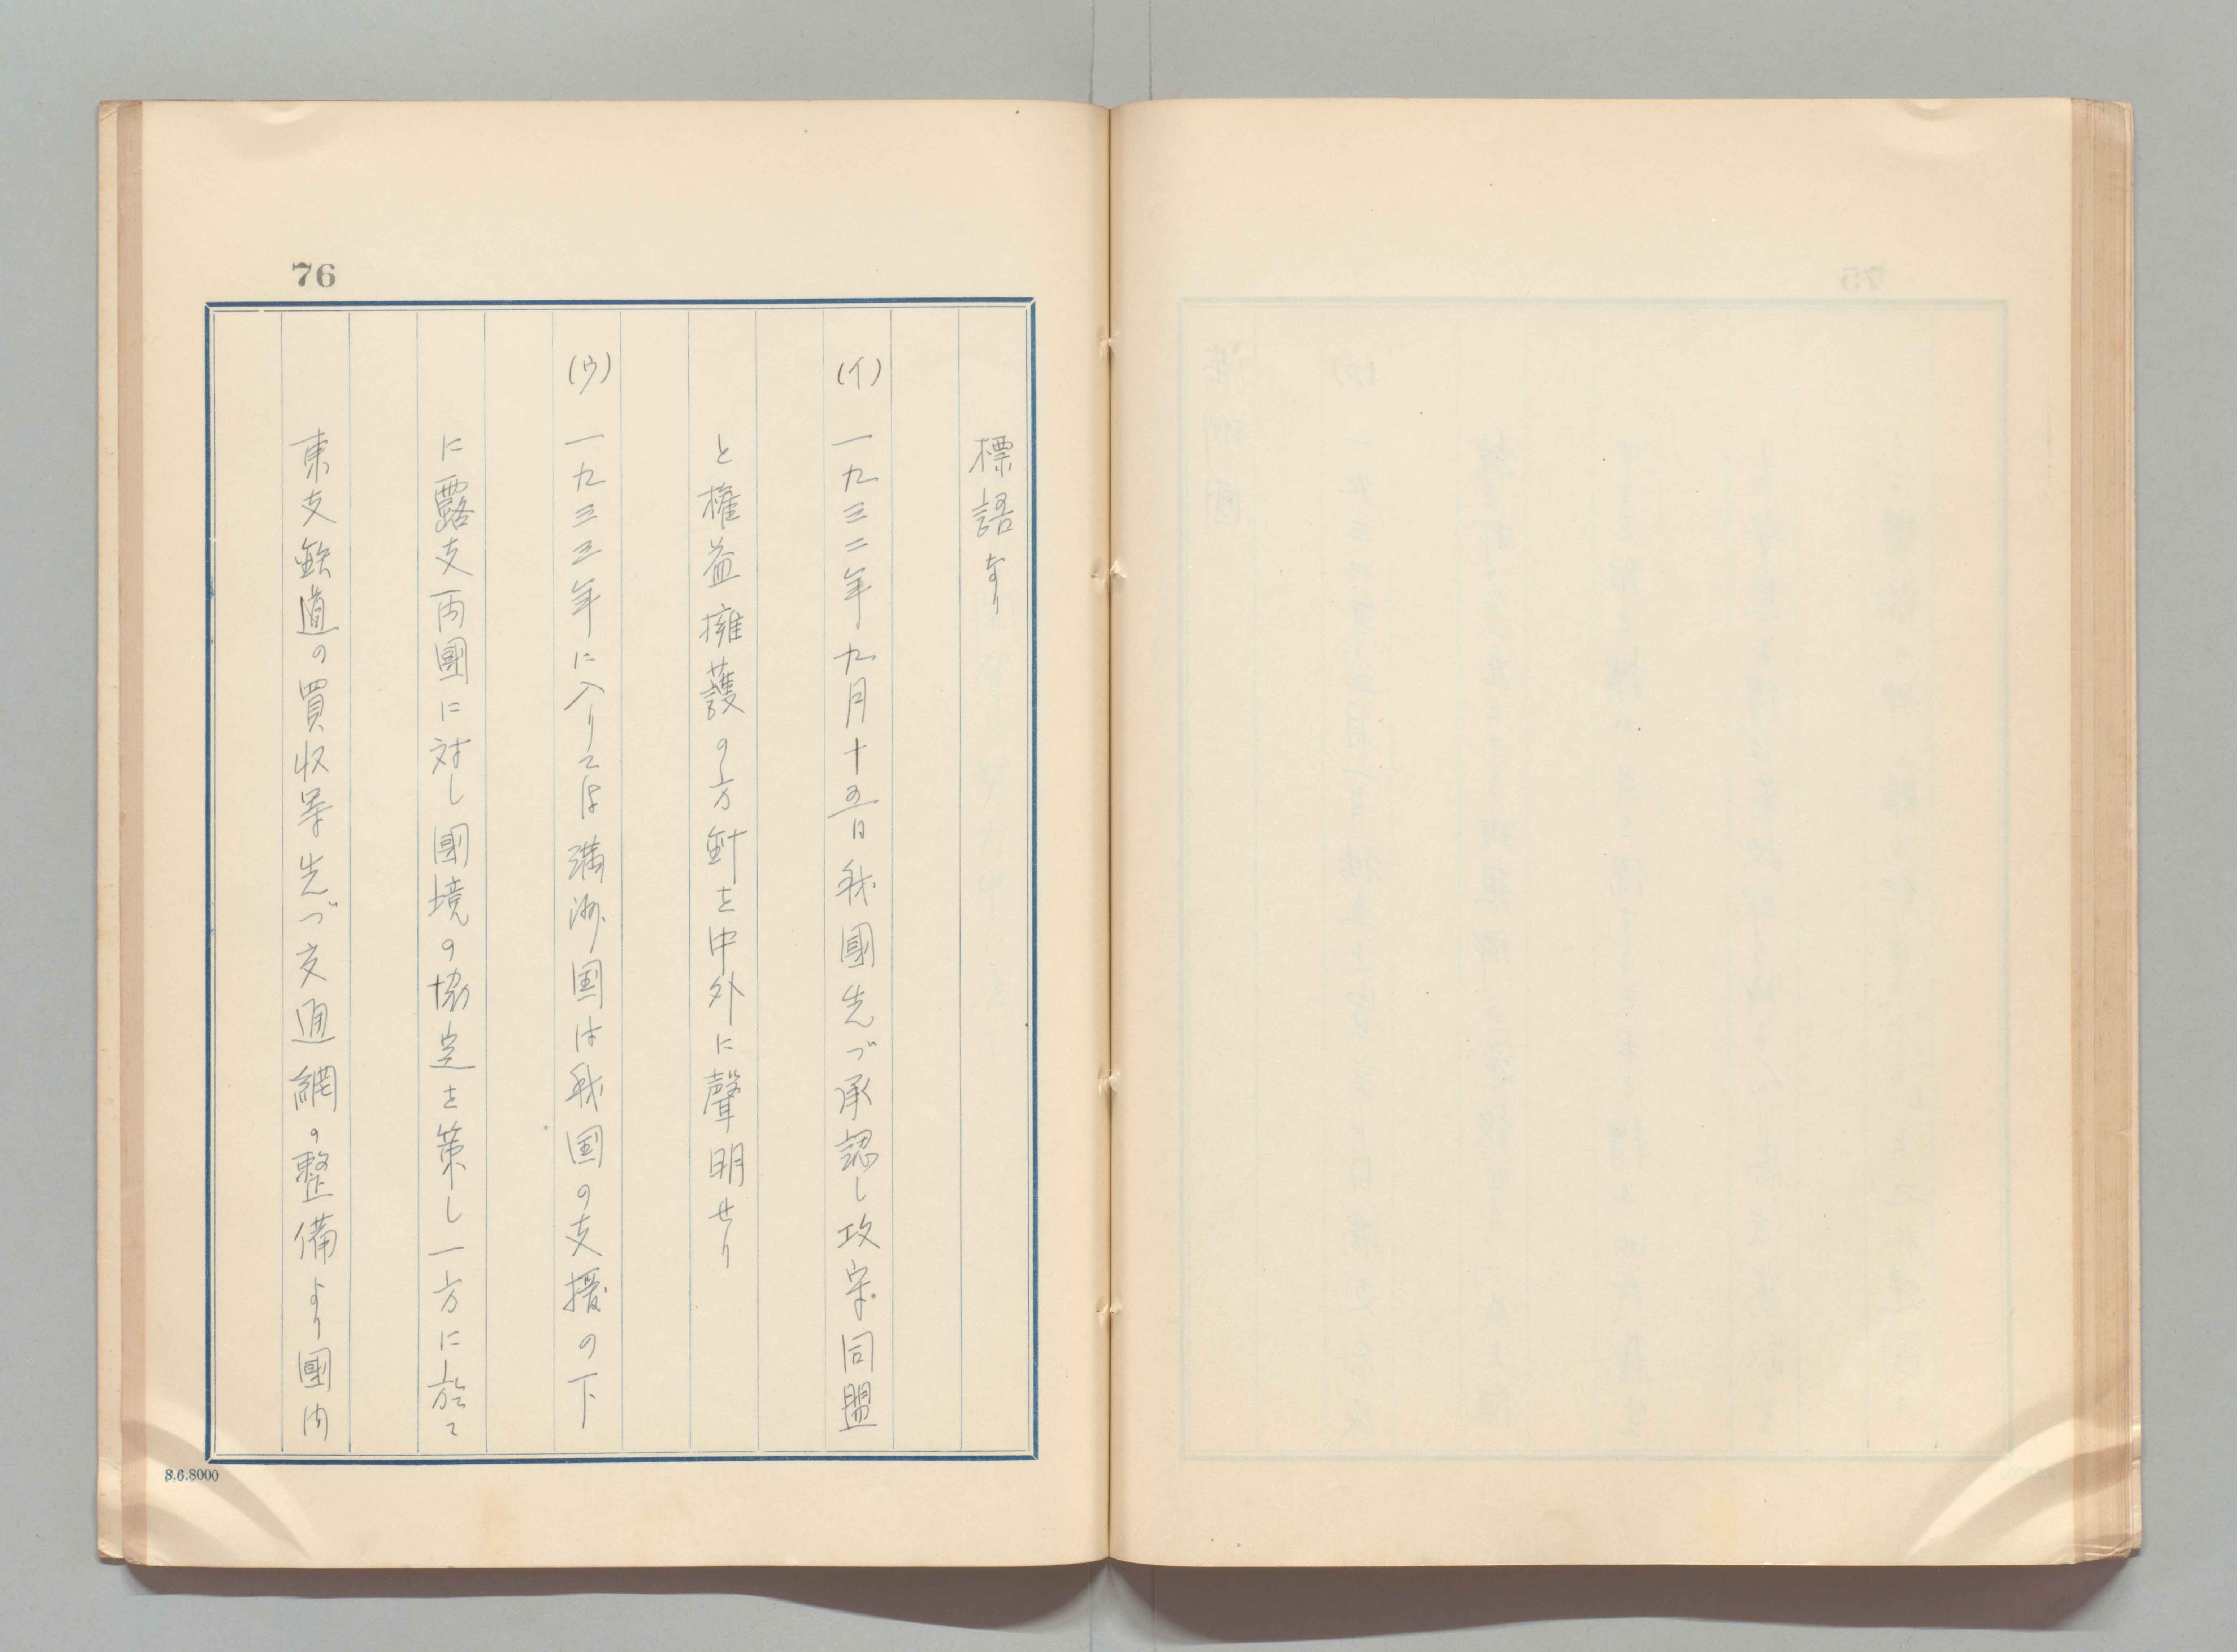 76
標語なり
(イ) 一九三二年九月十五日我國先づ承認し攻守同盟
と權益擁護の方針を中外に聲明せり
(ウ) 一九三三年に入りては満洲国は我国の支援の下
に露支両國に対し國境の協定を策し一方に於て
東支鉄道の買収等先づ交通網の整備より國内
8.6.8000